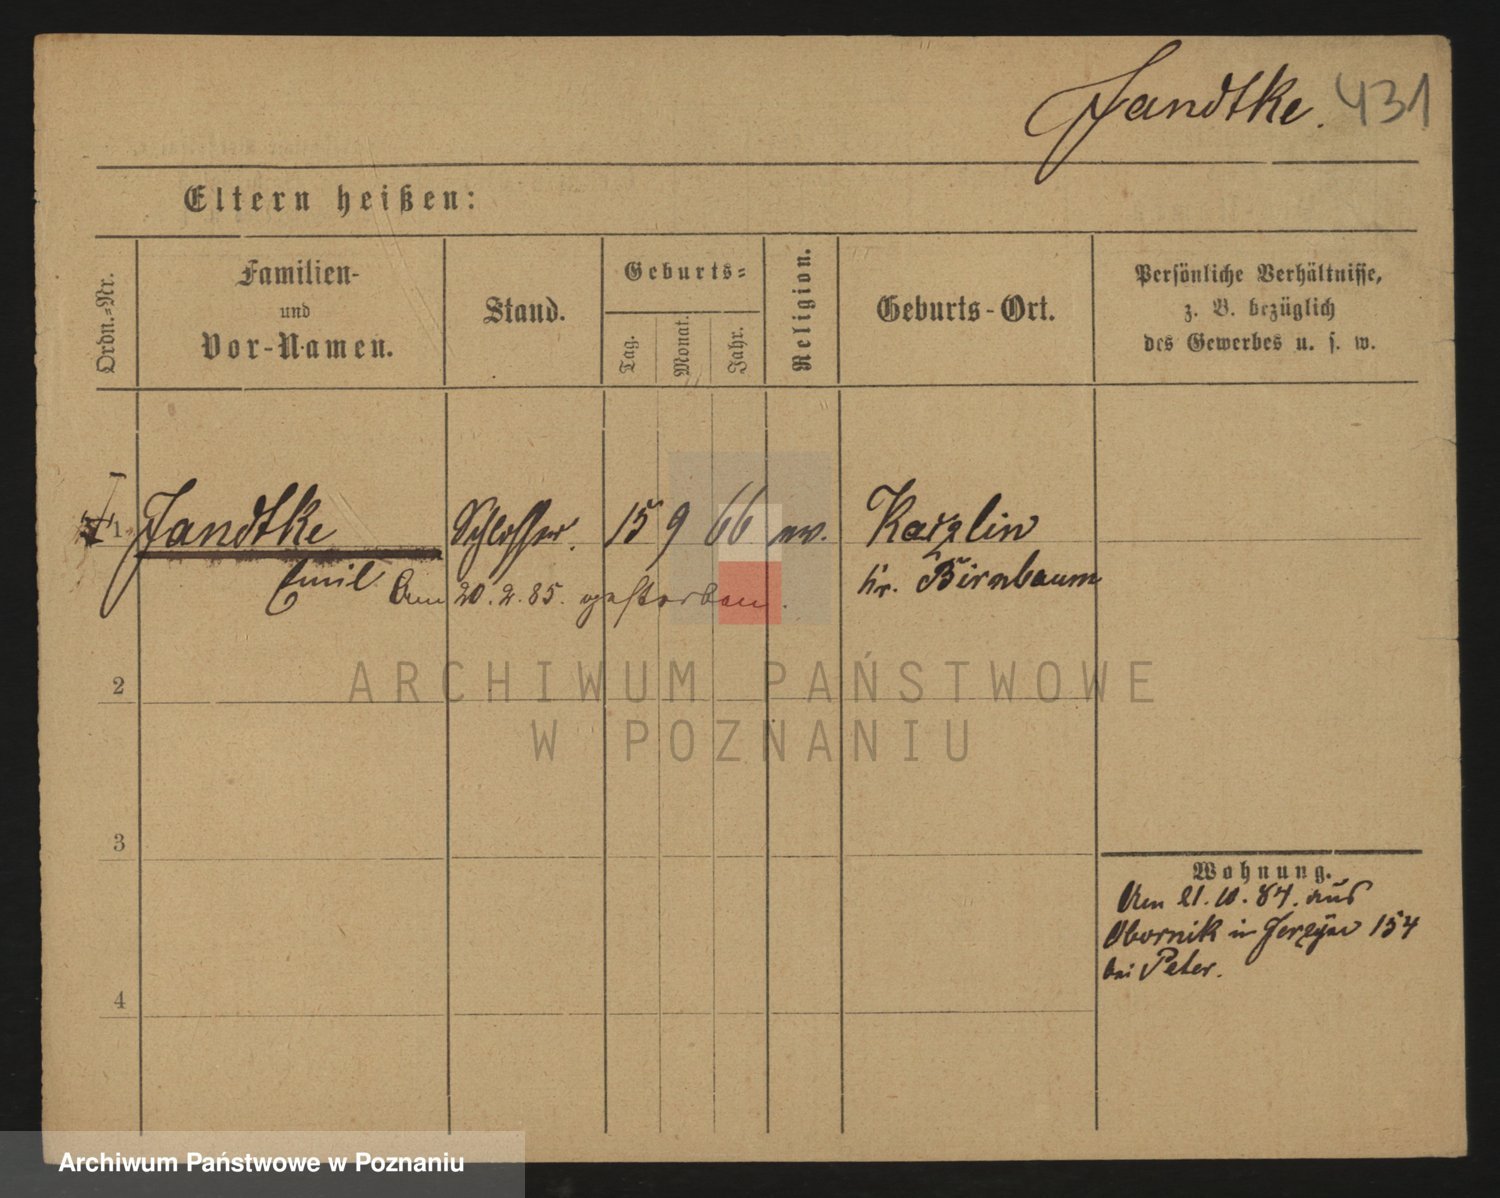 Jandtke. 431
Eltern heißen:
Ordn.-Nr.
Familien-
und
Vor-Namen.
Stand.
Geburts-
Tag.
Monat.
Jahr.
Religion.
Geburts-Ort.
Persönliche Verhältnisse,
z. B. bezüglich
des Gewerbes u. s. w.
1. Jandtke Schlosser. 15 9 66 ev. Karzlin
Emil Am 20. 2. 85. gestorben. Kr. Birnbaum
2
ARCHIWUM PAŃSTWOWE
W POZNANIU
3
Wohnung.
Am 21. 10. 84. aus
Obornik in Jerzyce 154
bei Peter.
4
Archiwum Państwowe w Poznaniu